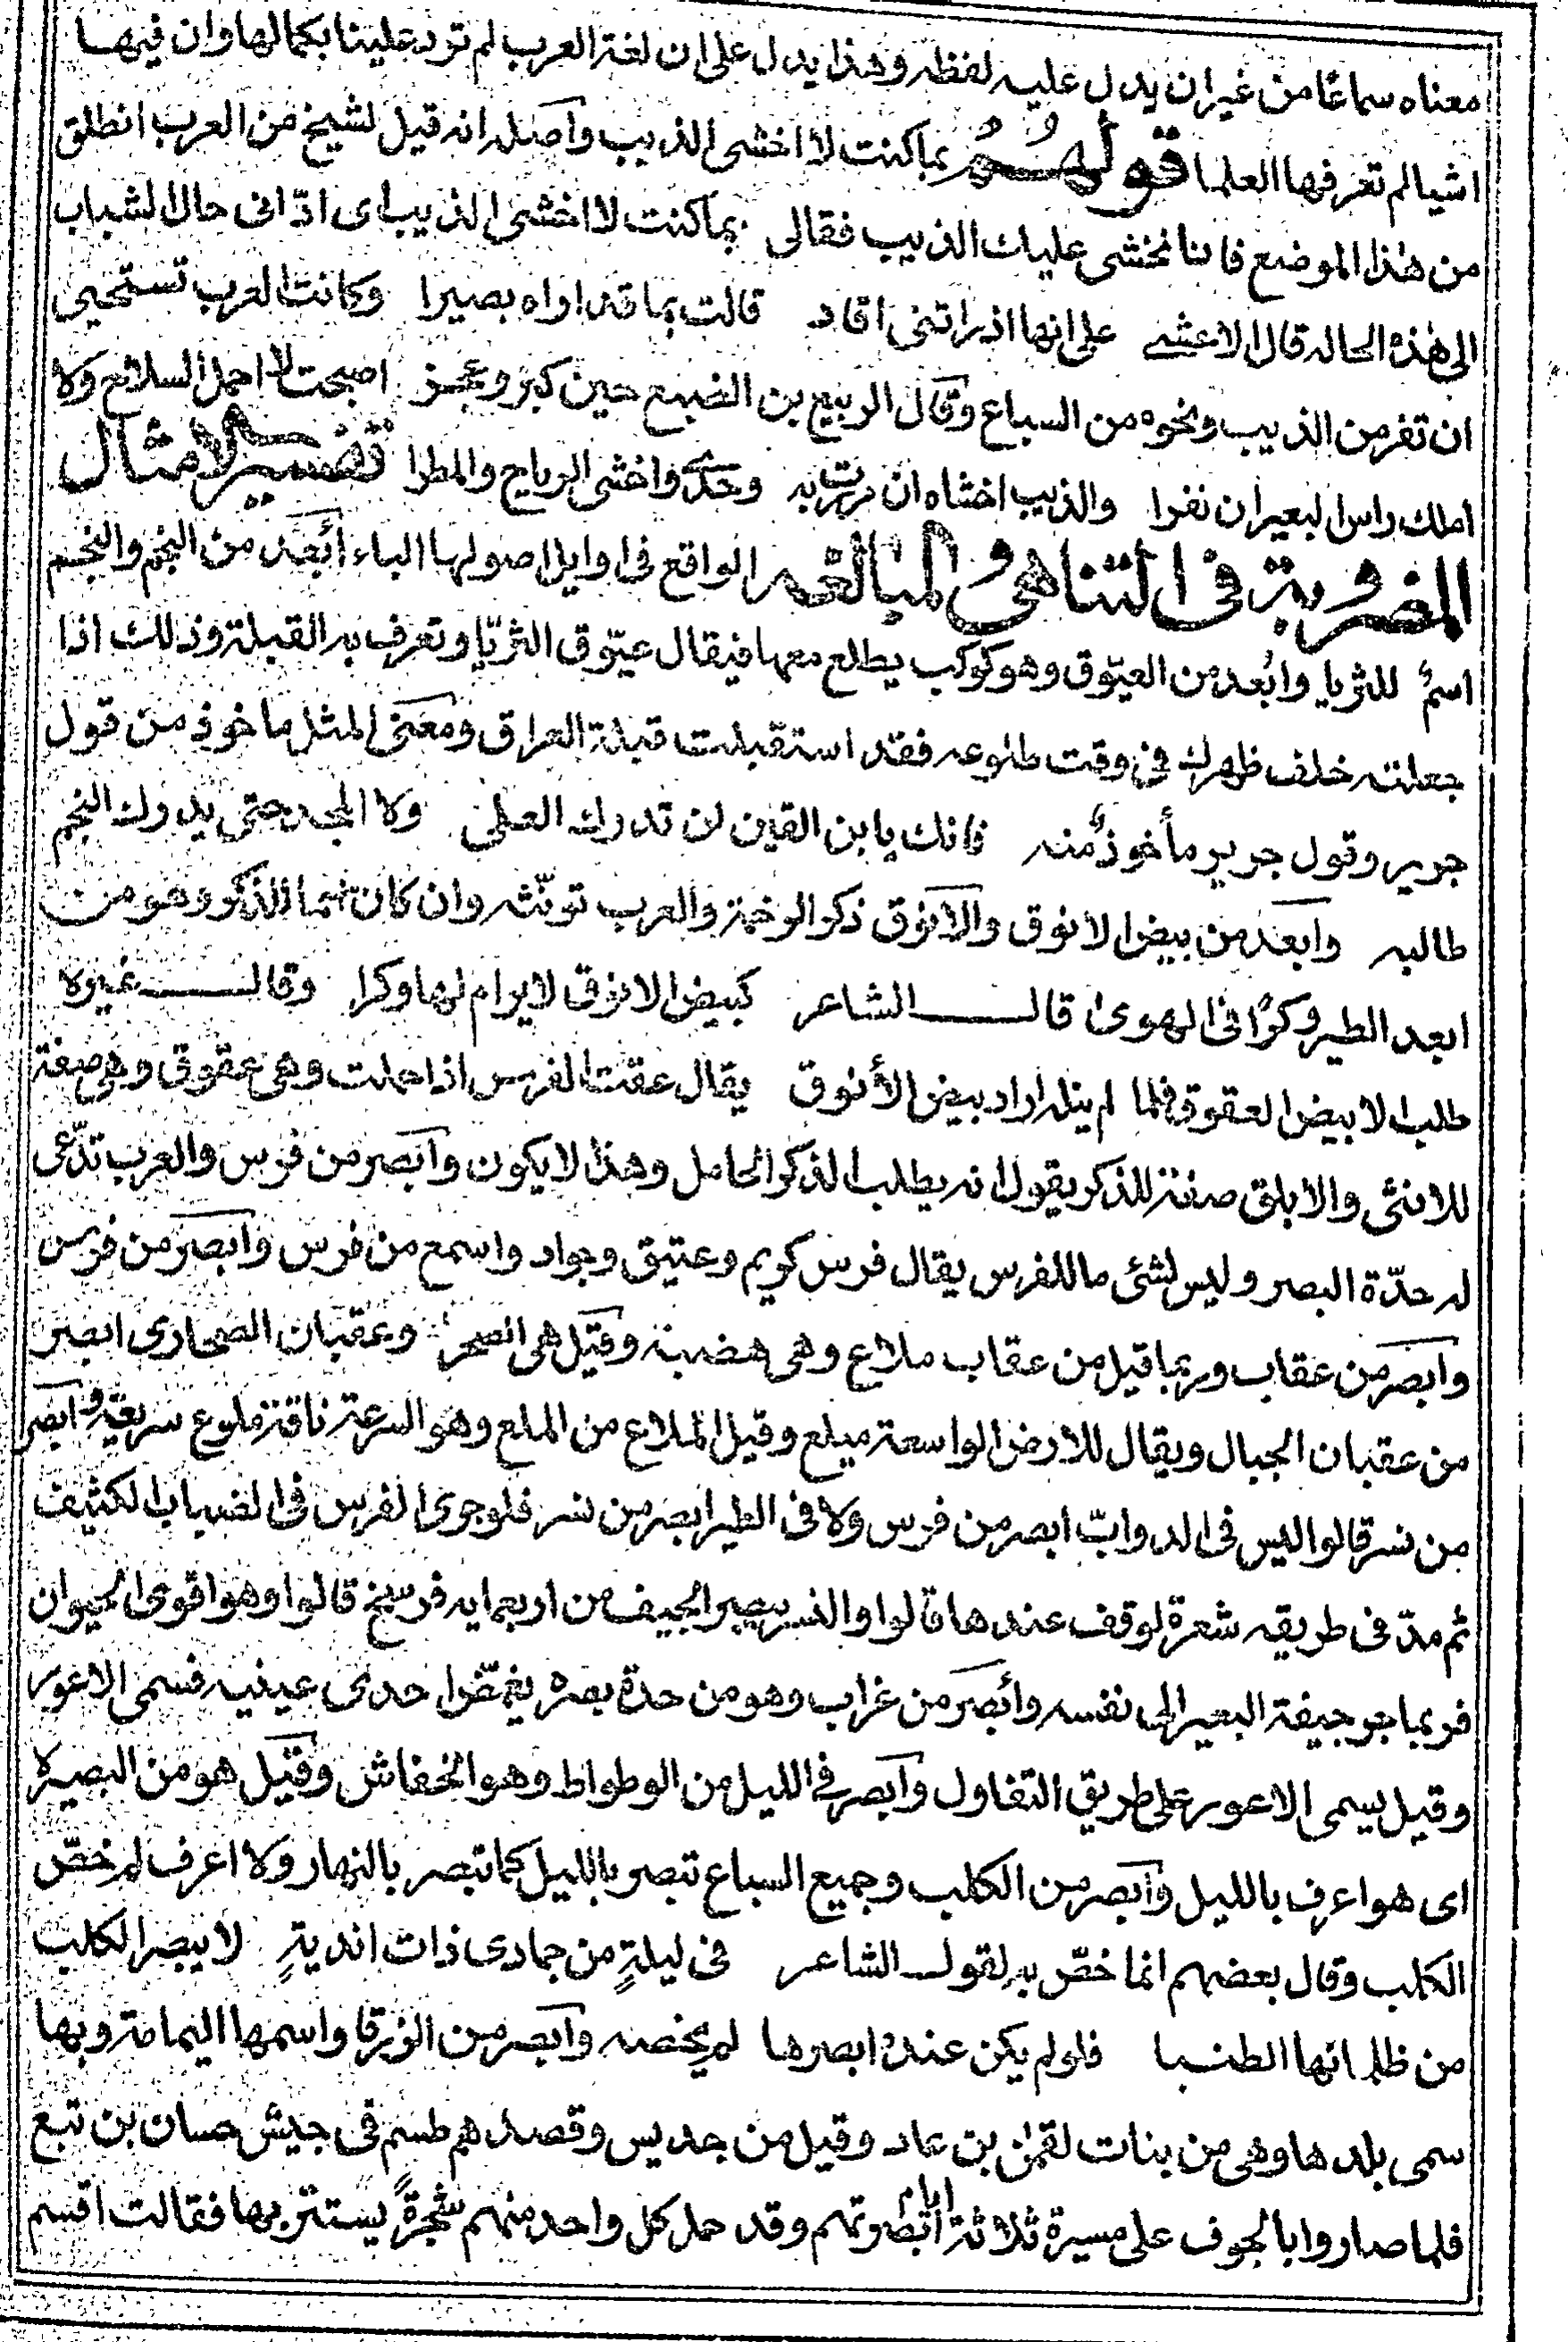 معناه سماعًا من غير ان يدل عليه لفظه وهذا يدل على ان لغة العرب لم ترد علينا بكمالها وان فيها
اشيا لم تعرفها العلما قولهُمُ بما كنت لا اخشى الذيب واصله انه قيل لشيخ من العرب انطلق
من هذا الموضع فاننا نخشى عليك الذيب فقالى بما كنت لا اخشى الذيب اى ادّانى حال الشباب
الى هذه الحاله قال الاعشى على انها اذ راتنى اقاد قالت بما قد اراه بصيرا وكانت العرب تستحيى
ان تفر من الذيب ونحوه من السباع وقال الربيع بن الضبع حين كبر وعجز اصبحت لا احمل السلاح ولا
املك راس البعير ان نفرا والذيب اخشاه ان مررت به وحدى واخشى الرياح والمطرا تفسير الامثال
المضروبة فى التناهى والمبالغه الواقع فى اوايل اصولها الباء أبعد من النجم والنجم
اسمٌ للثريا وابعد من العيّوق وهو كوكب يطلع معها فيقال عيّوق الثريّا وتعرف به القبلة وذلك اذا
جعلته خلف ظهرك فى وقت طلوعه فقد استقبلت قبلة العراق ومعنى المثل ماخوذ من قول
جرير وقول جرير مأخوذٌ منه فانك يا بن القين لن تدرك العلى ولا المجد حتى يدرك النجم
طالبه وابعد من بيض الانوق والانوق ذكر الرخمة والعرب تونّثه وان كان اسما للذكر وهو من
ابعد الطير وكرًا فى الهوى قال الشاعر كبيض الانوق لا يرام لها وكرا وقال غيره
طلب الابيض العقوق فلما لم ينله اراد بيض الأنوق يقال عقت الفرس اذا حملت وهى عقوق وهى صفة
للانثى والابلق صفة للذكر يقول انه يطلب الذكر الحامل وهذا لا يكون وابصر من فرس والعرب تدّعى
له حدّة البصر وليس لشئ ما للفرس يقال فرس كريم وعتيق وجواد واسمع من فرس وابصر من فرس
وابصر من عقاب وربما قيل من عقاب ملاع وهى هضبة وقيل هى الصحرا وعقبان الصحارى ابصر
من عقبان الجبال ويقال للارض الواسعة ميلع وقيل الملاع من الملع وهو السرعة ناقة ملوع سريعة وابصر
من نسر قالوا ليس فى الدوابّ ابصر من فرس ولا فى الطير ابصر من نسر فلو جرى الفرس فى الضباب الكثيف
ثم مدّ فى طريقه شعرة لوقف عندها قالوا والنسر يبصر الجيف من اربعمايه فرسخ قالوا وهو اقوى الحيوان
فربما جر جيفة البعير الى نفسه وأبصر من غراب وهو من حدة بصره يغمّض احدى عينيه فسمى الاعور
وقيل يسمى الاعور على طريق التفاول وابصر فى الليل من الوطواط وهو الخفاش وقيل هو من البصيرة
اى هو اعرف بالليل وابصر من الكلب وجميع السباع تبصر بالليل كما تبصر بالنهار ولا اعرف لم خصّ
الكلب وقال بعضهم انما خصّ به لقول الشاعر فى ليلةٍ من جمادى ذات انديةٍ لا يبصر الكلب
من ظلمائها الطنبا فلو لم يكن عنده ابصرها لم يخصه وابصر من الزرقا واسمها اليمامة وبها
سمى بلدها وهى من بنات لقمن بن عاد وقيل من جديس وقصدهم طسم فى جيش حسان بن تبع
فلما صاروا بالجوف على مسيرة ثلاثة ايام ابصرتهم وقد حمل كل واحد منهم شجرةً يستتر بها فقالت اقسم